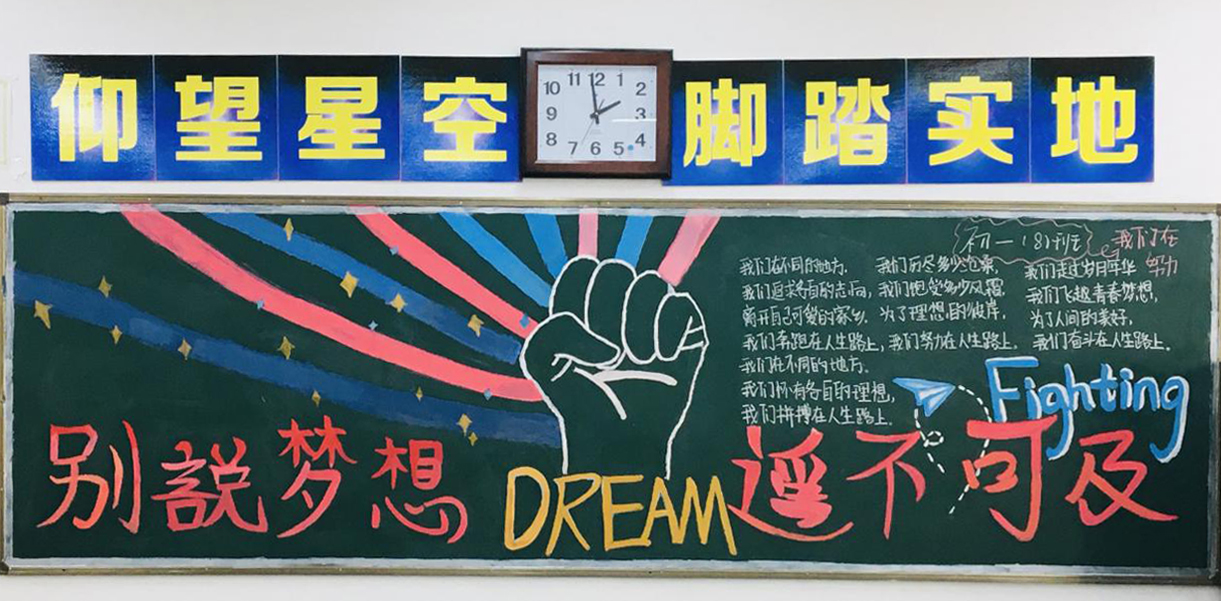 仰望星空 脚踏实地
11 12 1
10 2
9 3
8 4
7 6 5
初一(8)班
我们在
努力
我们在不同的地方.
我们追求各自的志向,
离开自己可爱的家乡.
我们奔跑在人生路上,
我们在不同的地方.
我们怀有各自的理想,
我们拼搏在人生路上.
我们历尽多少沧桑,
我们饱览多少风霜,
为了理想的彼岸,
我们努力在人生路上.
我们走过岁月年华
我们飞越青春梦想,
为了人间的美好,
我们奋斗在人生路上.
Fighting
别説梦想 DREAM 遥不可及